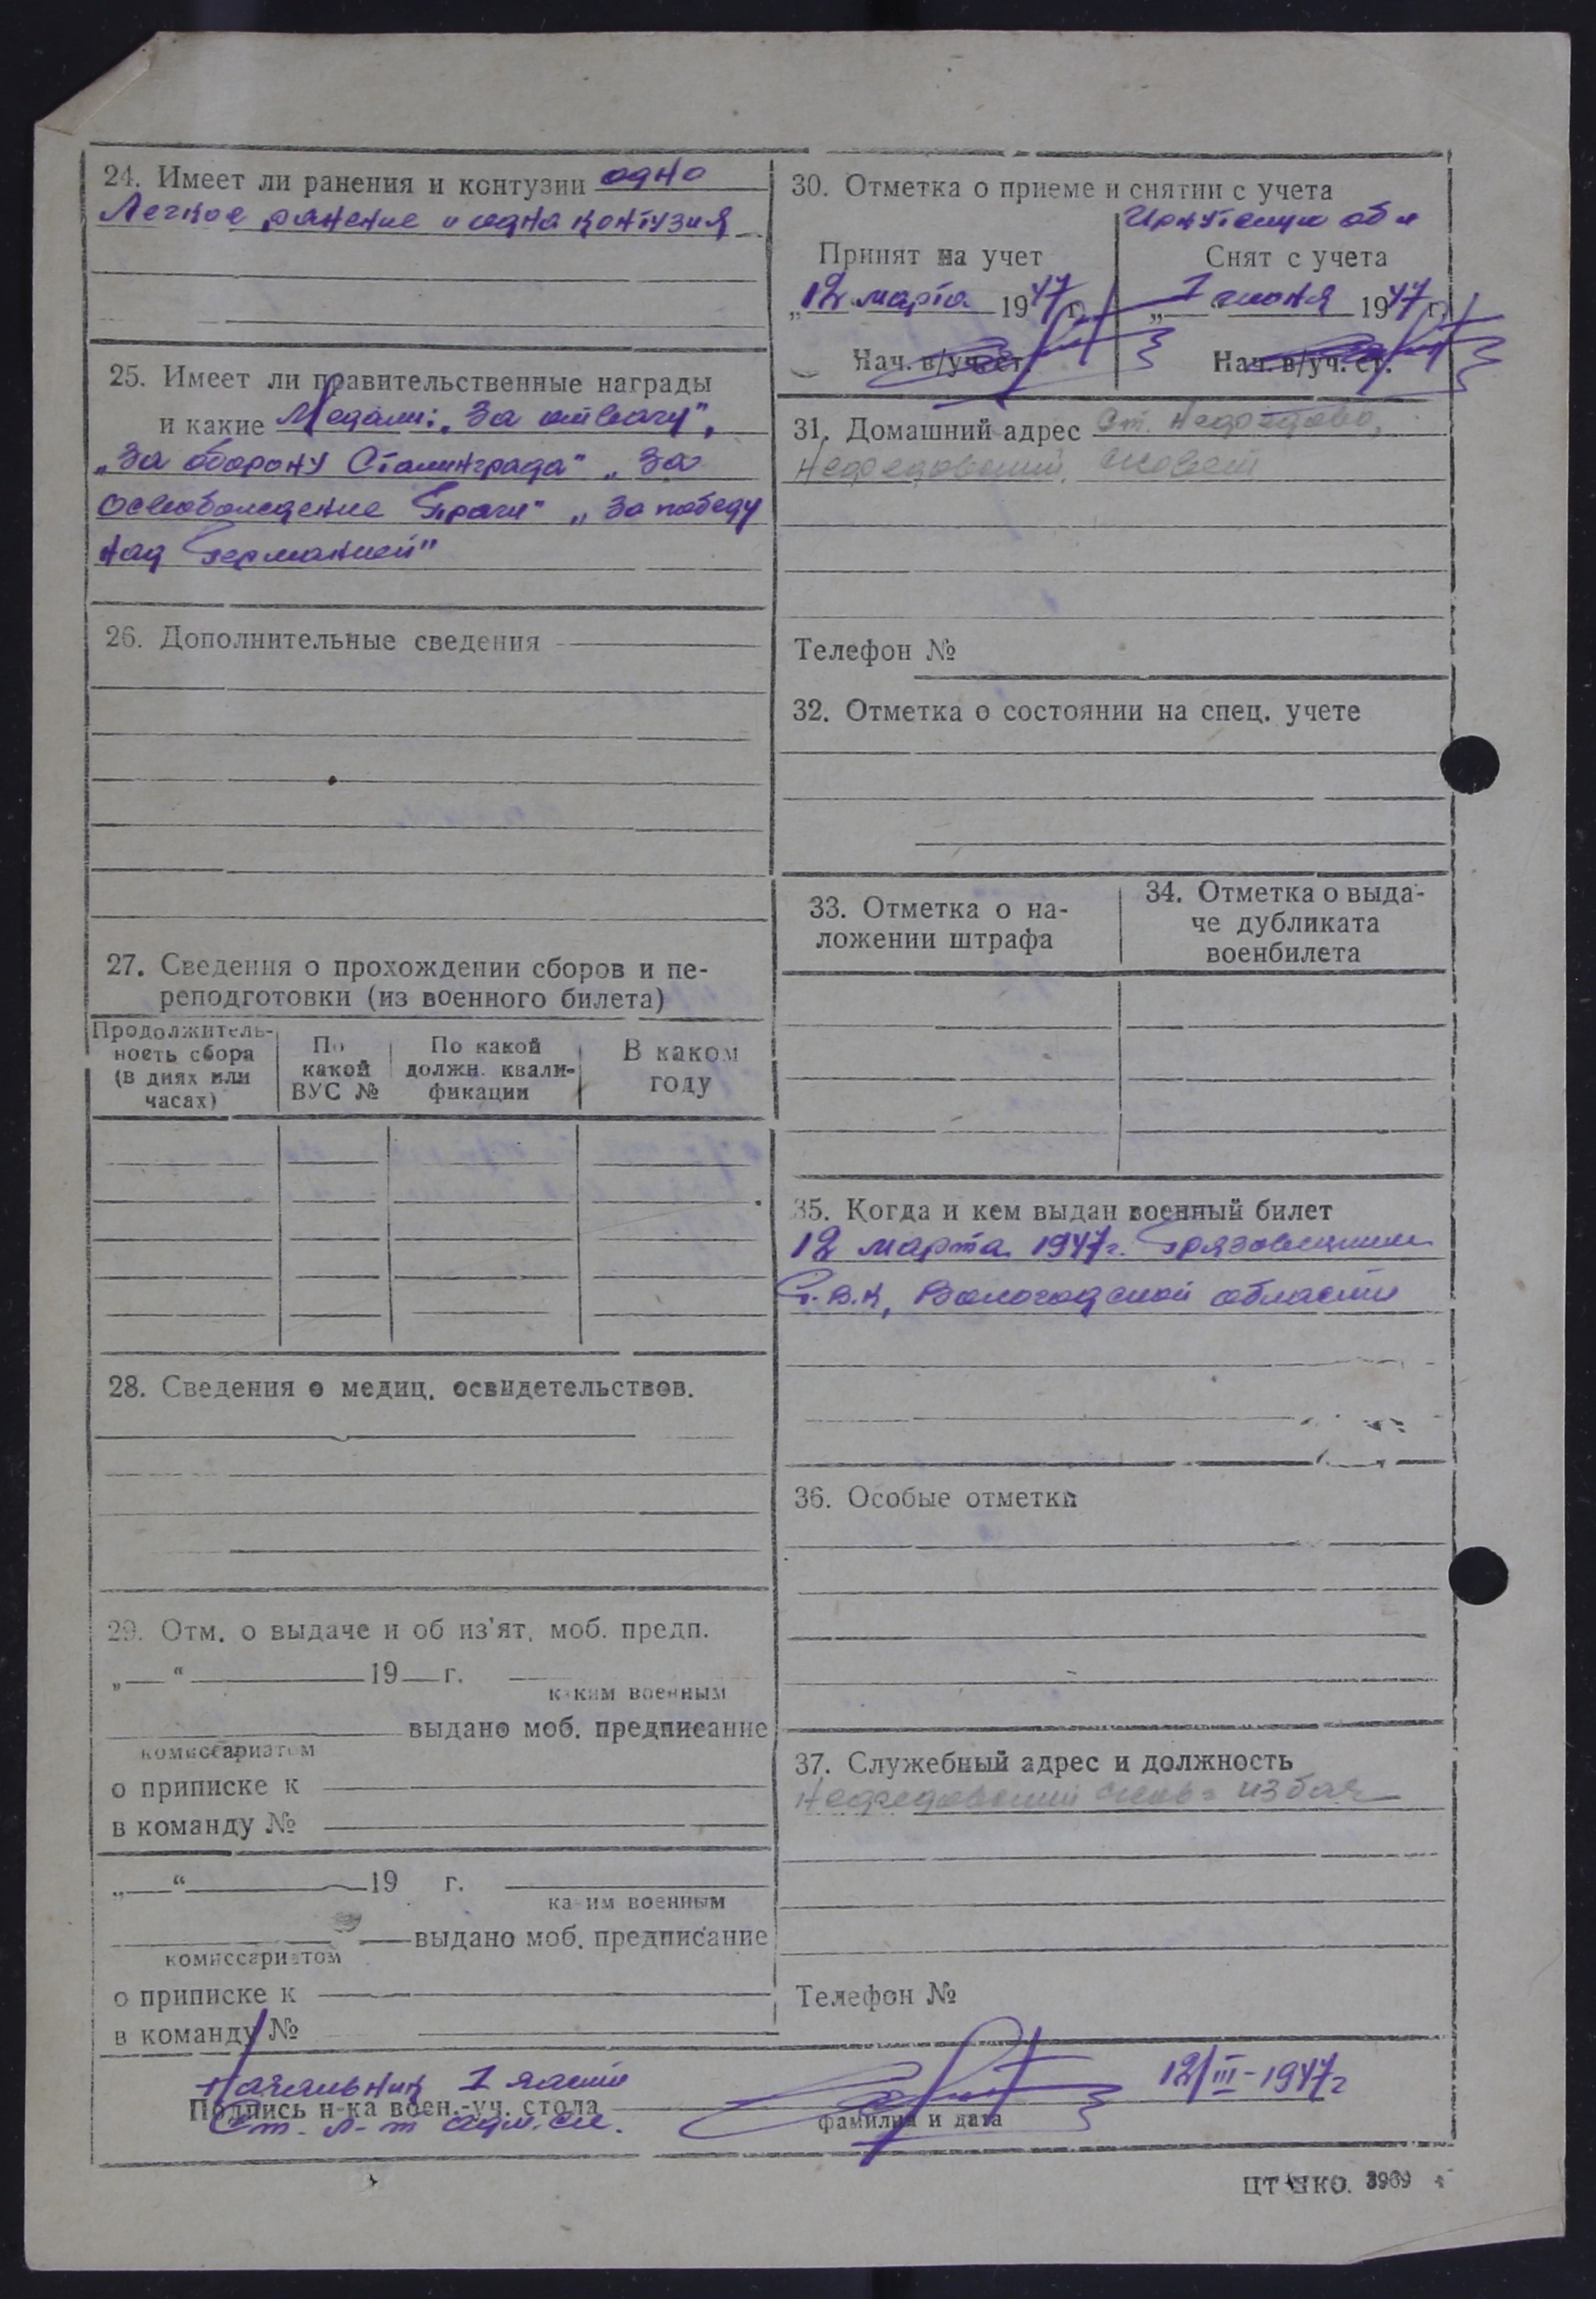 24. Имеет ли ранения и контузии одно
Легкое ранение и одна контузия
25. Имеет ли правительственные награды
и какие Медали: „За отвагу",
„За оборону Сталинграда" „За
освобождение Праги" „За победу
над Германией"
26. Дополнительные сведения
27. Сведения о прохождении сборов и пе-
реподготовки (из военного билета)
Продолжитель-
ность сбора
(в днях или
часах)
По
какой
ВУС №
По какой
должн. квали-
фикации
В каком
году
28. Сведения о медиц. освидетельствов.
29. Отм. о выдаче и об из'ят. моб. предп.
„ “ 19 г.
каким военным
выдано моб. предписание
комиссариатом
о приписке к
в команду №
„ “ 19 г.
ка им военным
выдано моб. предписание
комиссариатом
о приписке к
в команду №
30. Отметка о приеме и снятии с учета
Принят на учет
„12 марта 1947 г.
Нач. в/уч. ст.
Иркутскую обл
Снят с учета
„1 июня 1947 г.
Нач. в/уч. ст.
31. Домашний адрес ст.
совет
Телефон №
32. Отметка о состоянии на спец. учете
33. Отметка о на-
ложении штрафа
34. Отметка о выда-
че дубликата
военбилета
35. Когда и кем выдан военный билет
12 марта 1947г. Грязовецким
Р.В.К, Вологодской области
36. Особые отметки
37. Служебный адрес и должность
избач
Телефон №
Начальник 1 части
Подпись н-ка воен.-уч. стола
Ст. л-т адм. сл.
фамилия и дата
12/III-1947г
ЦТ НКО. 3969